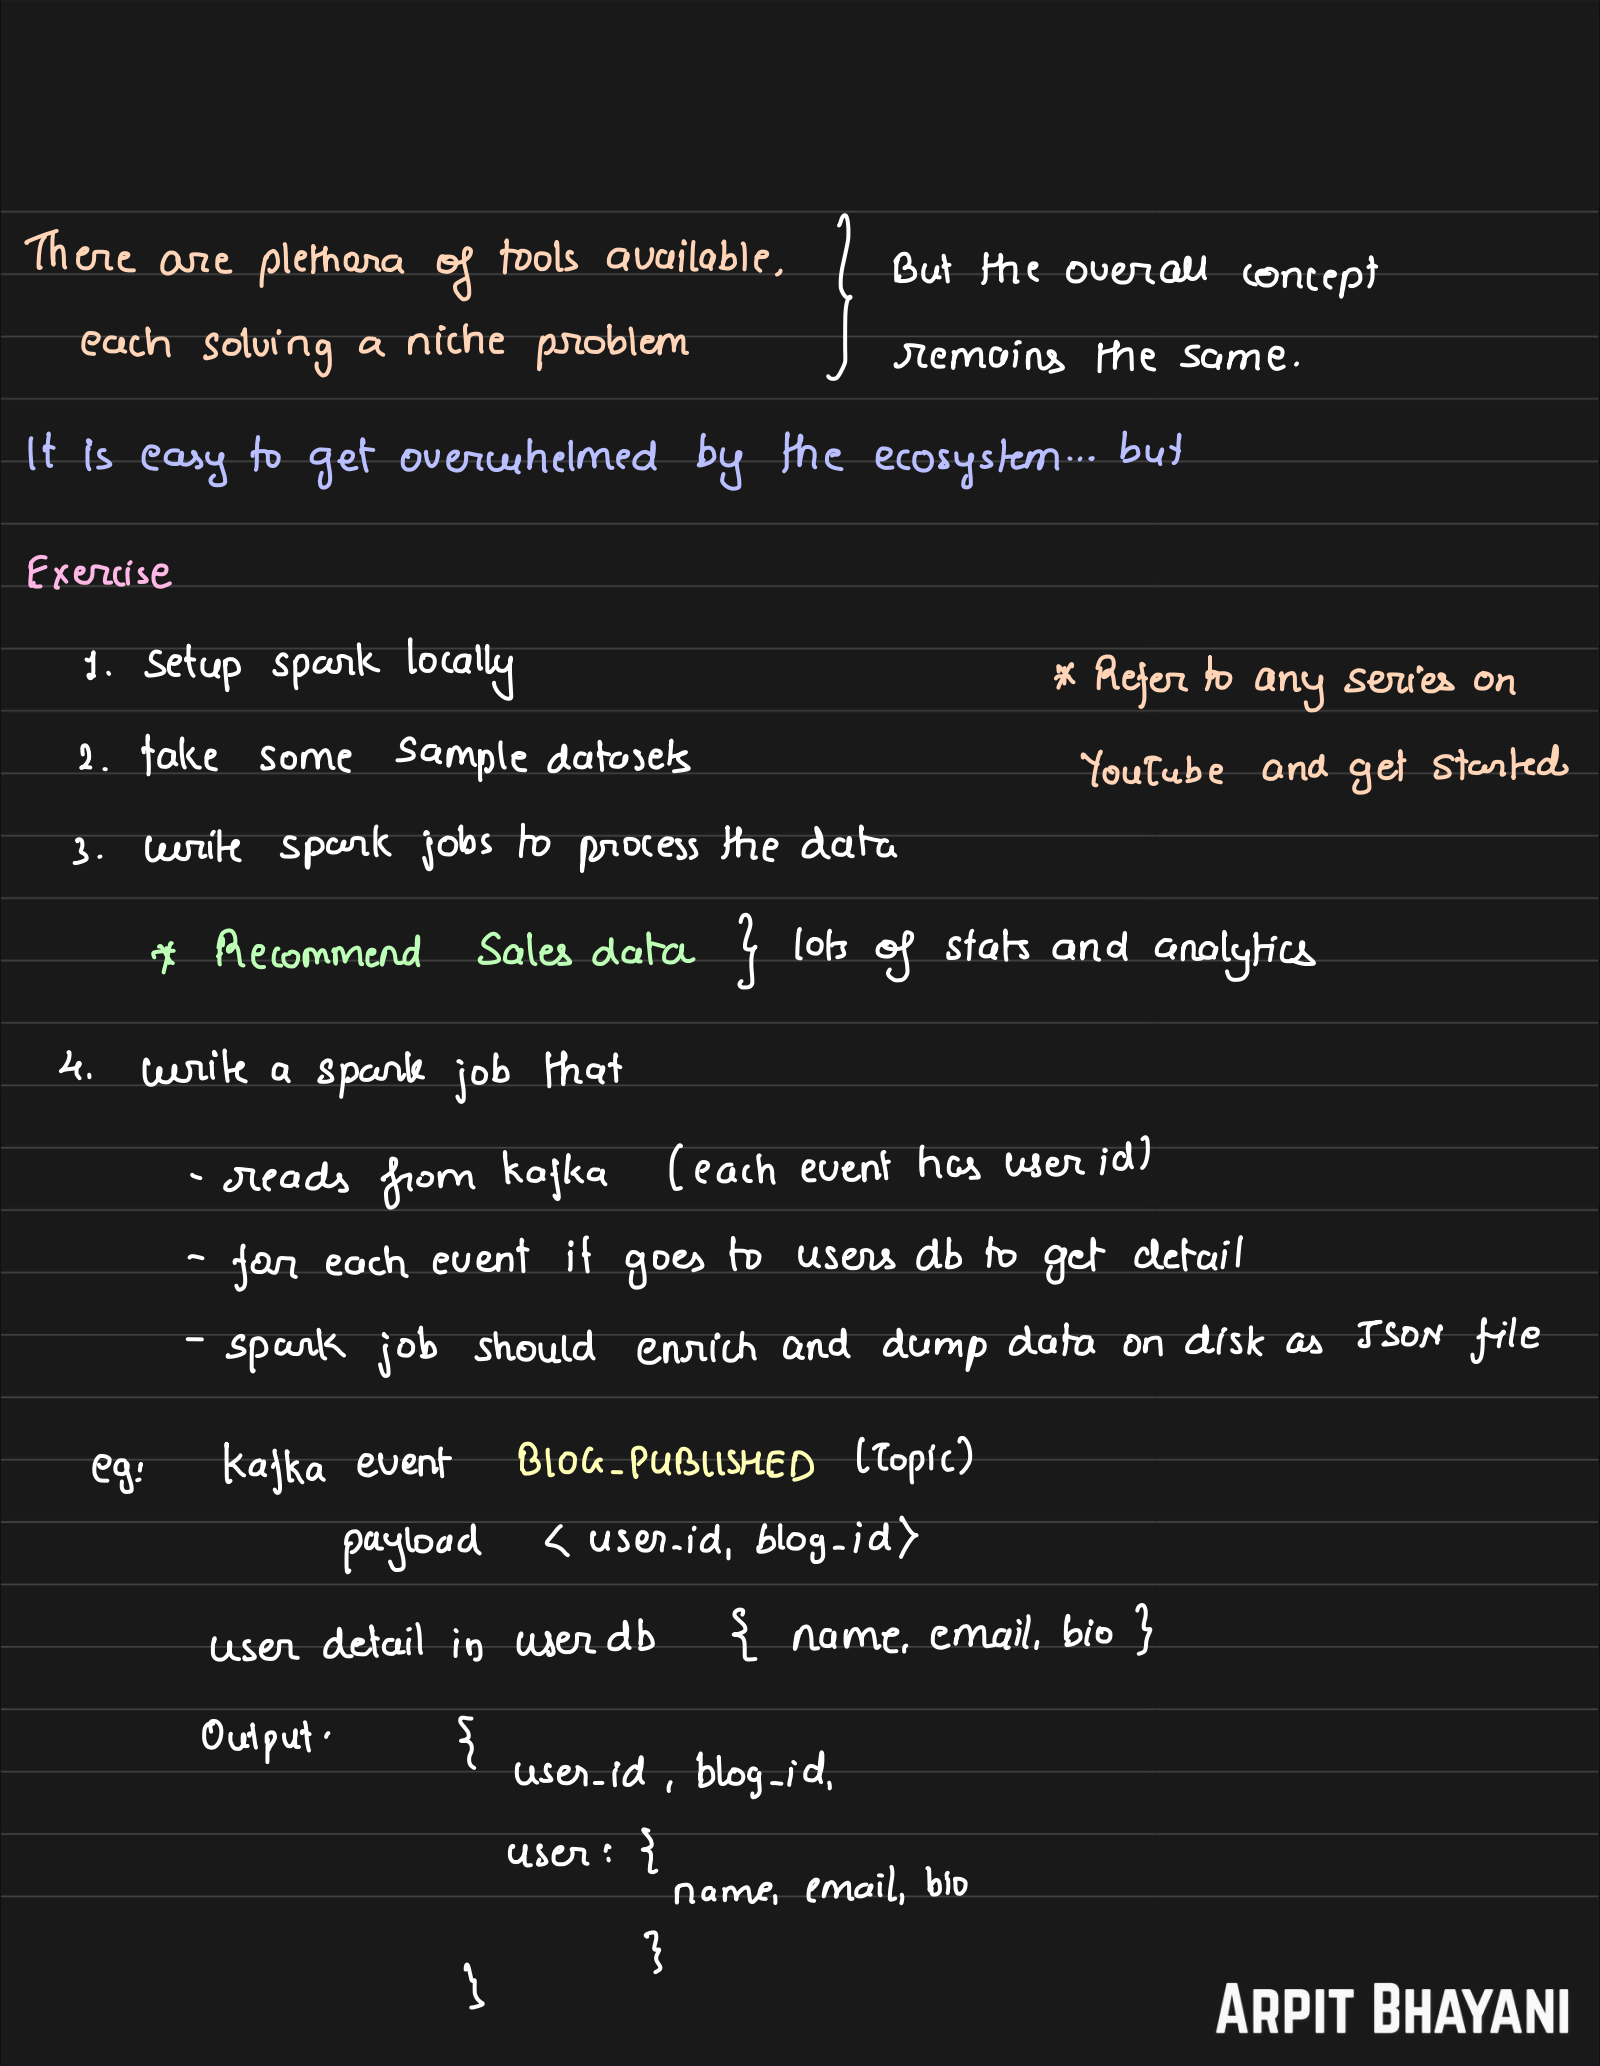 There are plethora of tools available,
each solving a niche problem
} But the overall concept
remains the same.
It is easy to get overwhelmed by the ecosystem... but
Exercise
1. Setup spark locally
2. take some sample datasets
* Refer to any series on
YouTube and get started
3. write spark jobs to process the data
* Recommend Sales data } lots of stats and analytics
4. write a spark job that
- reads from kafka (each event has user id)
- for each event it goes to users db to get detail
- spark job should enrich and dump data on disk as JSON file
eg: kafka event BLOG_PUBLISHED (Topic)
payload < user_id, blog_id>
user detail in user db { name, email, bio }
Output. {
user_id, blog_id,
user: {
name, email, bio
}
}
ARPIT BHAYANI